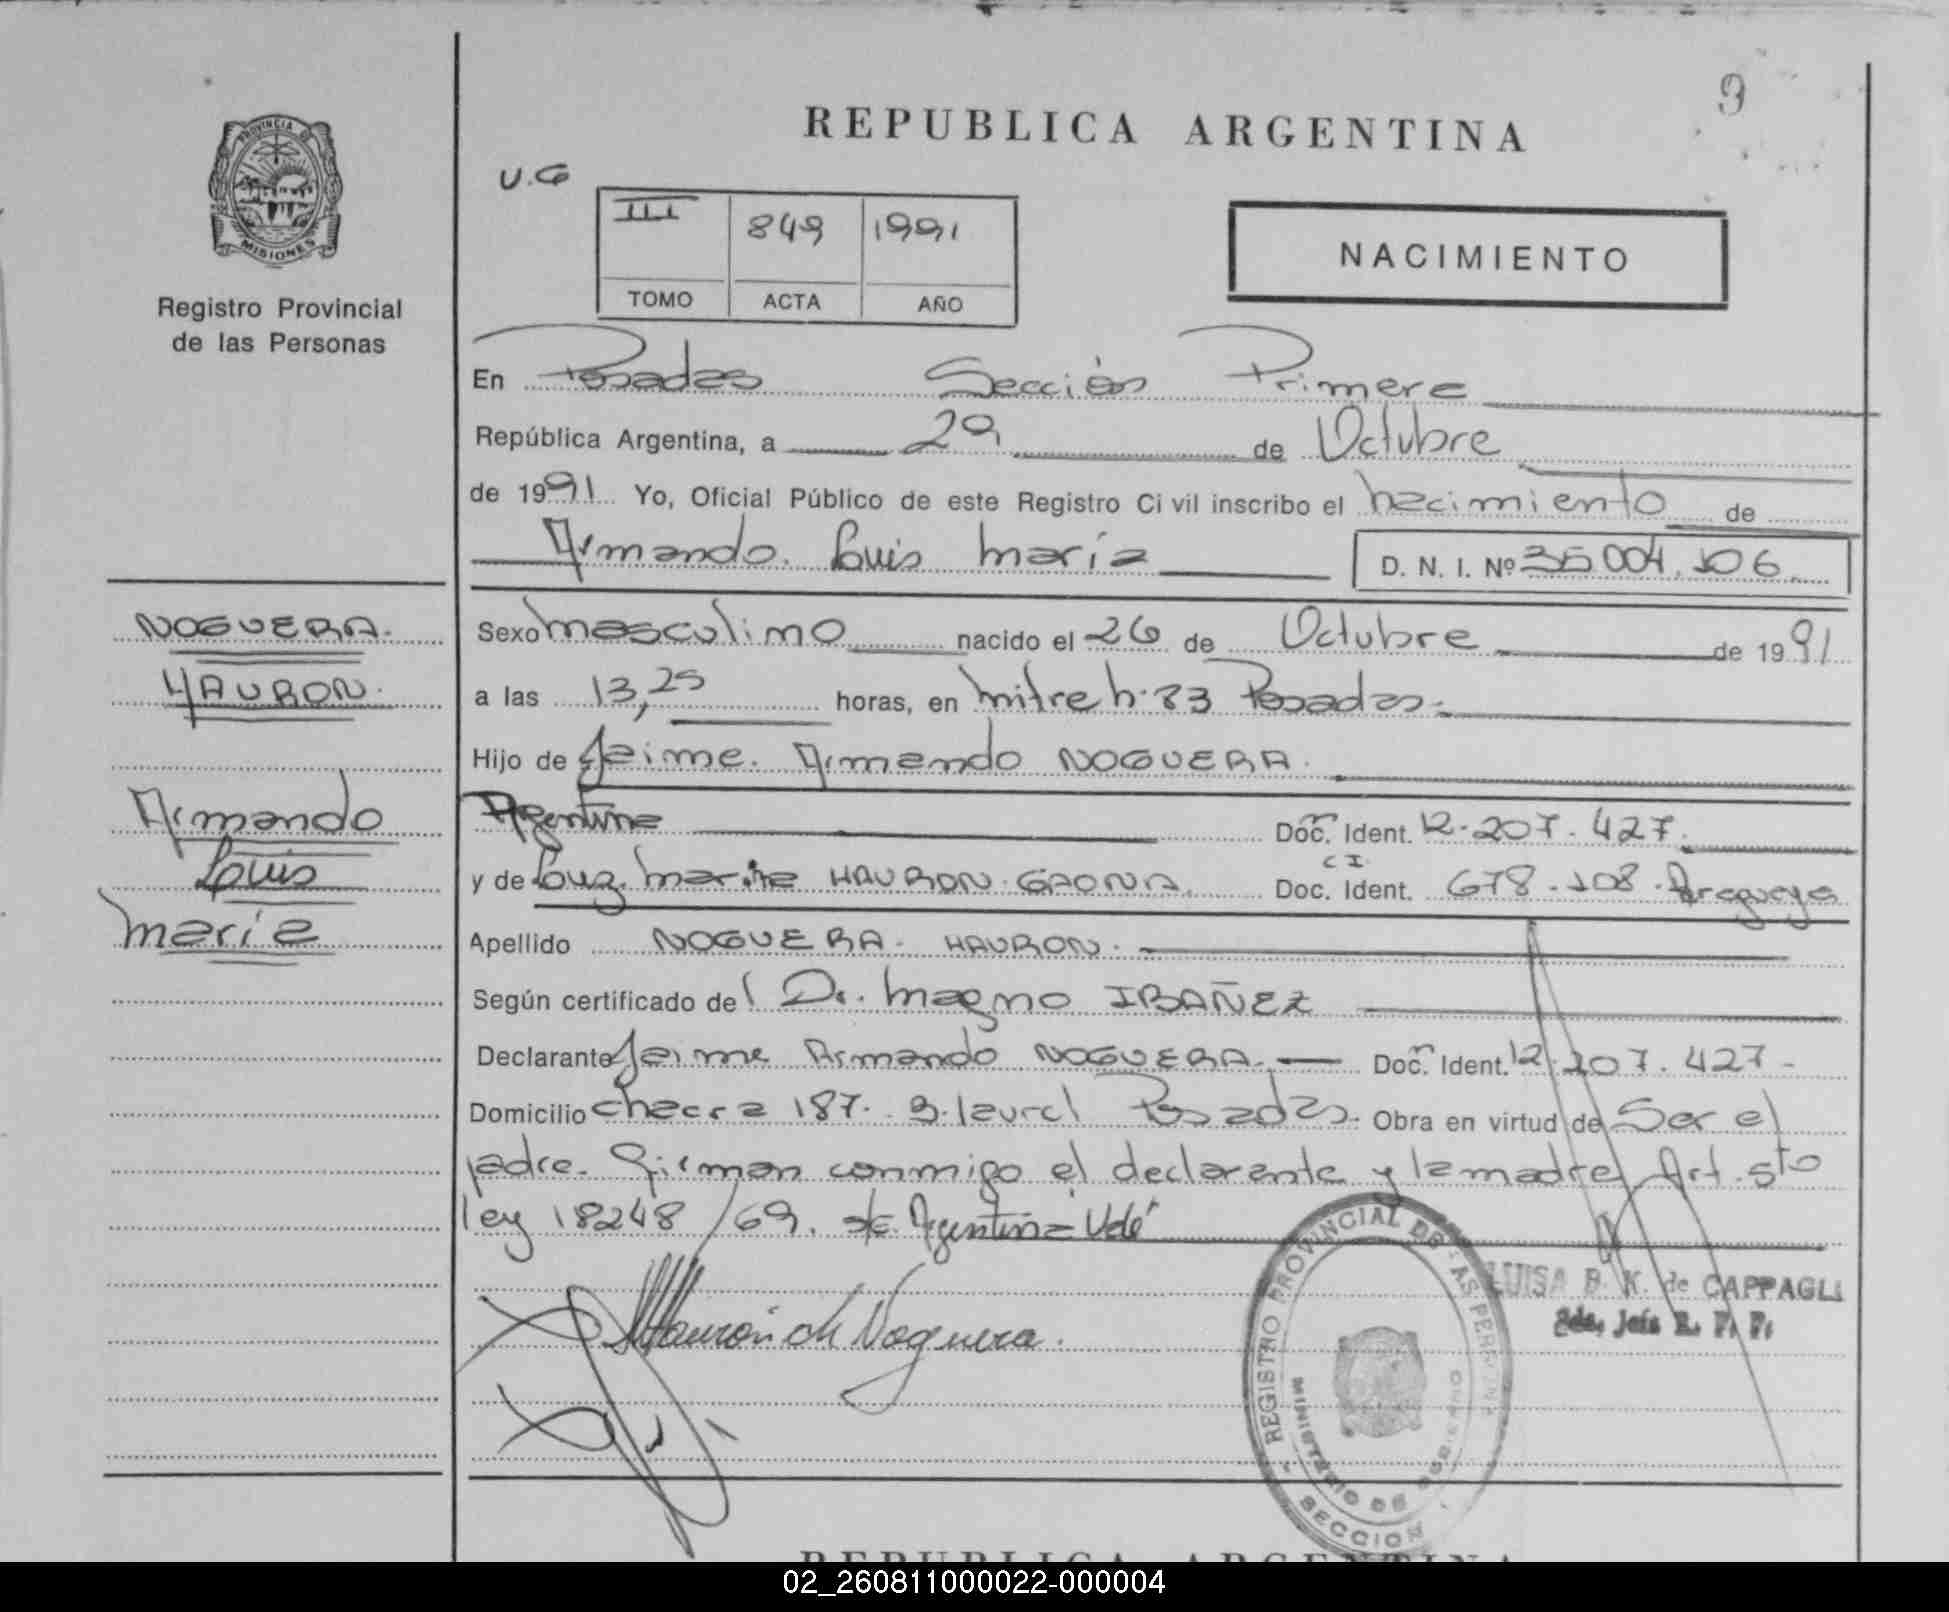 9
REPUBLICA ARGENTINA
U.G
PROVINCIA DE MISIONES
Registro Provincial
de las Personas
III 849 1991
TOMO ACTA AÑO
NACIMIENTO
En Posadas Sección Primera
República Argentina, a 29 de Octubre
de 1991 Yo, Oficial Público de este Registro Civil inscribo el nacimiento de
Armando Luis María D. N. I. Nº 36.004.106
NOGUERA
HAURON
Armando
Luis
María
Sexo masculino nacido el 26 de Octubre de 1991
a las 13,25 horas, en Mitre h.83 Posadas
Hijo de Jaime Armando NOGUERA
Argentina Doc. Ident. 12.207.427
y de Luz Marina HAURON GAONA CI Doc. Ident. 678.108 Paraguaya
Apellido NOGUERA HAURON
Según certificado del Dr. Magno IBAÑEZ
Declarante Jaime Armando NOGUERA Doc. Ident. 12.207.427
Domicilio chacra 187. B. laurel Posadas. Obra en virtud de Ser el
padre. Firman conmigo el declarante y la madre Art. 5to
ley 18248/69. Argentina Vale
Hauron de Noguera.
LUISA B. K. de CAPPAGLI
2da. Jefa R. P. P.
REGISTRO PROVINCIAL DE LAS PERSONAS
MINISTERIO DE GOBIERNO
SECCION
REPUBLICA ARGENTINA
02_260811000022-000004